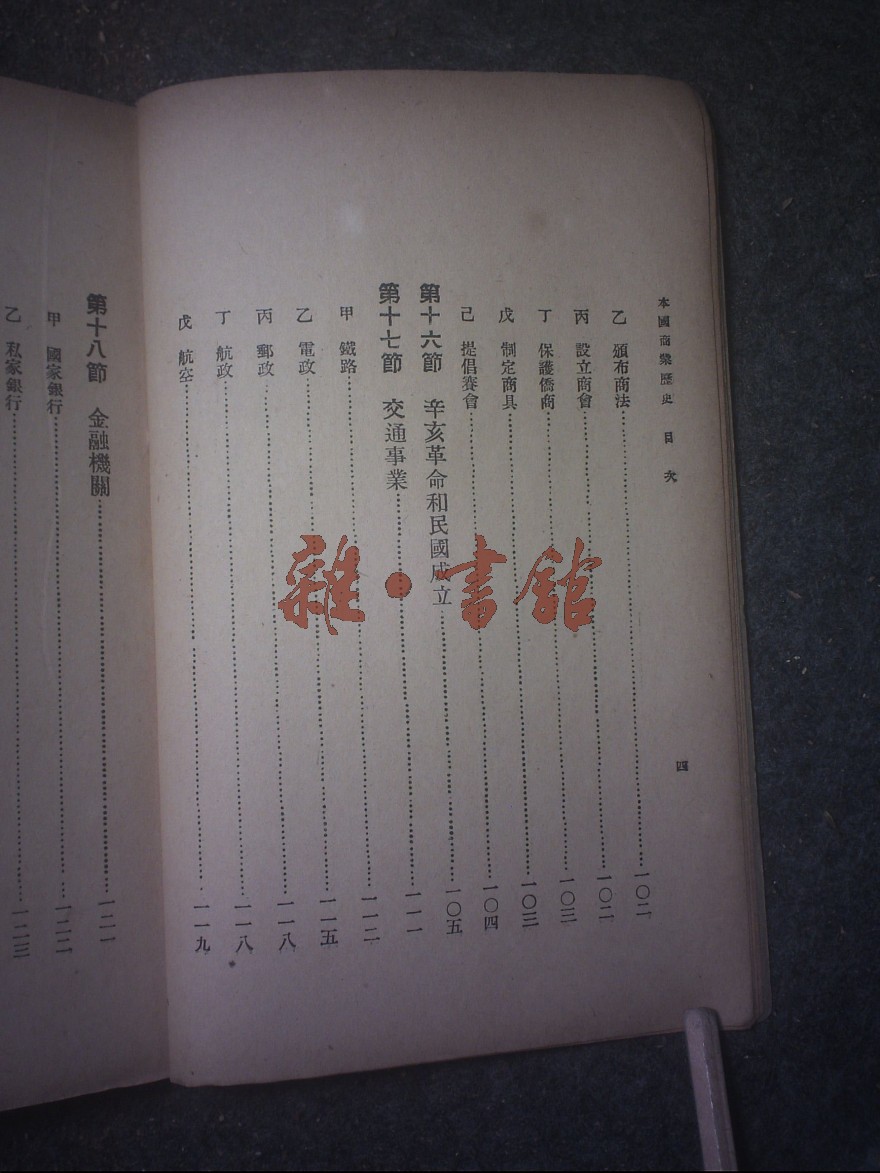 本國商業歷史 目次 四
乙 頒布商法 一〇二
丙 設立商會 一〇二
丁 保護僑商 一〇三
戊 制定商具 一〇三
己 提倡賽會 一〇四
第十六節 辛亥革命和民國成立 一〇五
第十七節 交通事業 一一一
甲 鐵路 一一二
乙 電政 一一五
丙 郵政 一一八
丁 航政 一一八
戊 航空 一一九
第十八節 金融機關 一二一
甲 國家銀行 一二二
乙 私家銀行 一二三
雜·書館